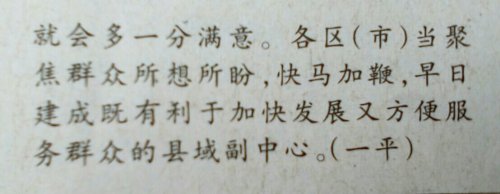 就会多一分满意。各区(市)当聚
焦群众所想所盼,快马加鞭,早日
建成既有利于加快发展又方便服
务群众的县域副中心。(一平)